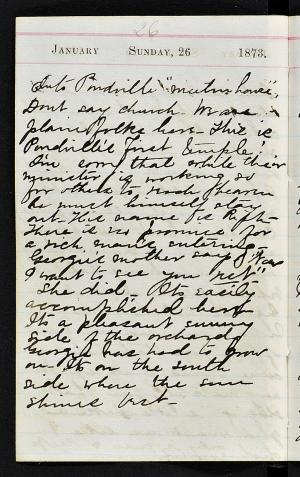 26
JANUARY SUNDAY, 26 1873.
Into Pondville "meetin house",
Dont say church We are
plain folks here - This is
Pondville's first Temple!
I'm sorry that while their
minister is working so
for others to reach heaven
he must himself stay
out - His name is Rich -
There is no promise for
a rich man's entering
Georgie's mother says
I want to see you
She did - Its easily
accomplished here
Its a pleasant sunny
side of the orchard
Georgie has had to grow
on - Its on the south
side where the sun
shines best -